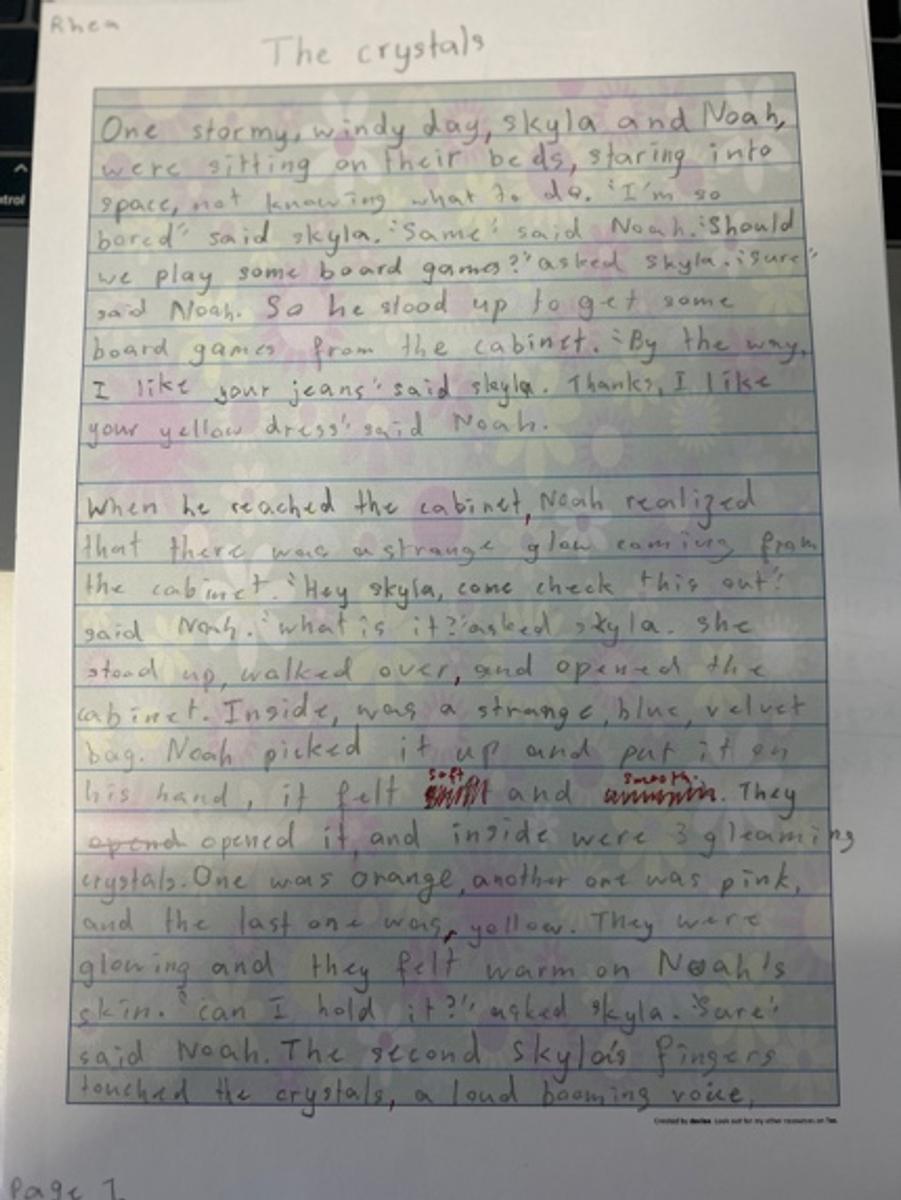 Rhea
The crystals
One stormy, windy day, skyla and Noah,
were sitting on their beds, staring into
space, not knowing what to do. "I'm so
bored" said skyla. "Same" said Noah. "Should
we play some board games?" asked skyla. "sure"
said Noah. So he stood up to get some
board games from the cabinet. "By the way,
I like your jeans" said skyla. Thanks, I like
your yellow dress" said Noah.
When he reached the cabinet, Noah realized
that there was a strange glow coming from
the cabinet. "Hey skyla, come check this out"
said Noah. "what is it?" asked skyla. she
stood up, walked over, and opened the
cabinet. Inside, was a strange, blue, velvet
bag. Noah picked it up and put it on
his hand, it felt soft and smooth. They
opend opened it, and inside were 3 gleaming
crystals. One was orange, another one was pink,
and the last one was, yellow. They were
glowing and they felt warm on Noah's
skin. "can I hold it?" asked skyla. "Sure"
said Noah. The second skyla's fingers
touched the crystals, a loud booming voice,
Created by Look out for my other resources on Tes.
Page 1
trol